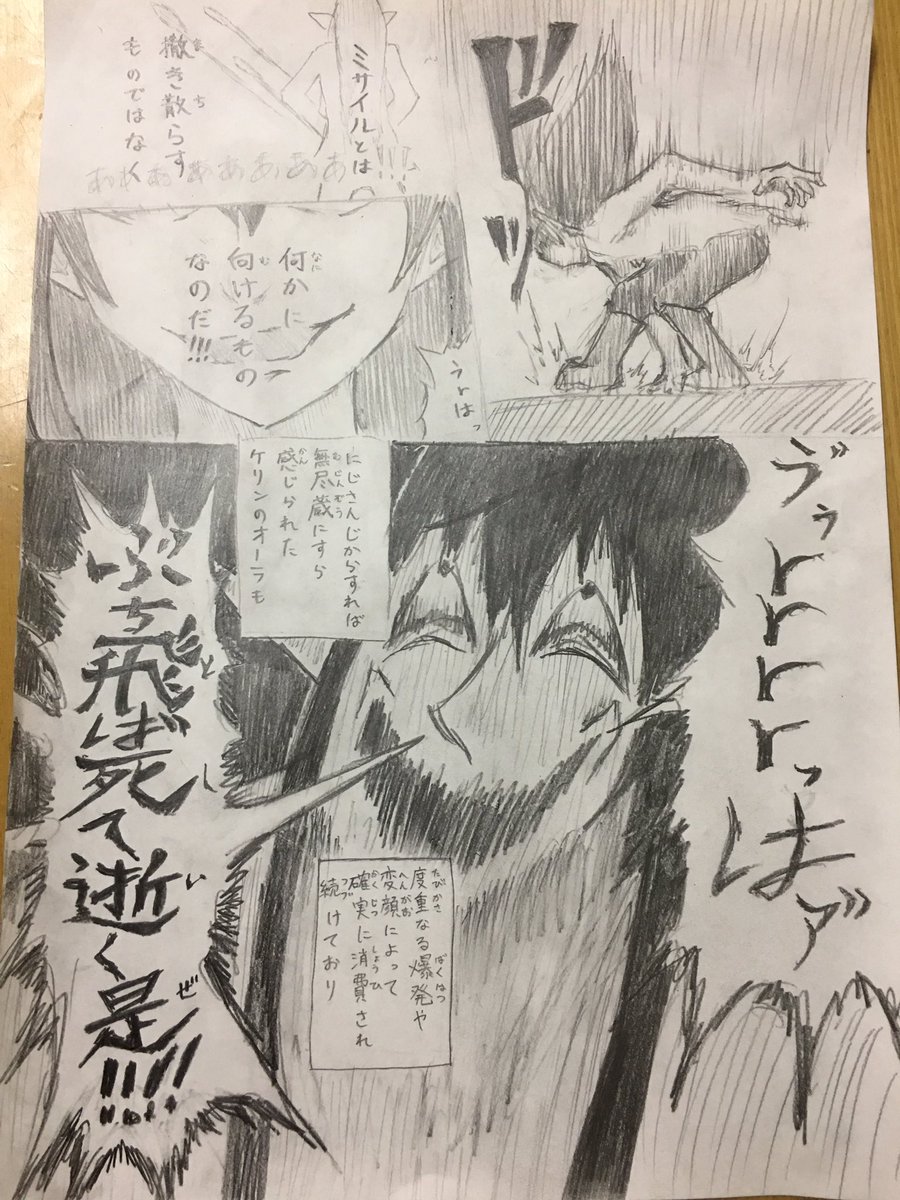 ドッ
ミサイルとは
撒き散らす
ものではなく
何かに
向けるもの
なのだ!!!
ヴゥrrrrっはァ
にじさんじからすれば
無尽蔵にすら
感じられた
ケリンのオーラも
度重なる爆発や
変顔によって
確実に消費され
続けており
ぶち飛ば死て逝く是!!!!